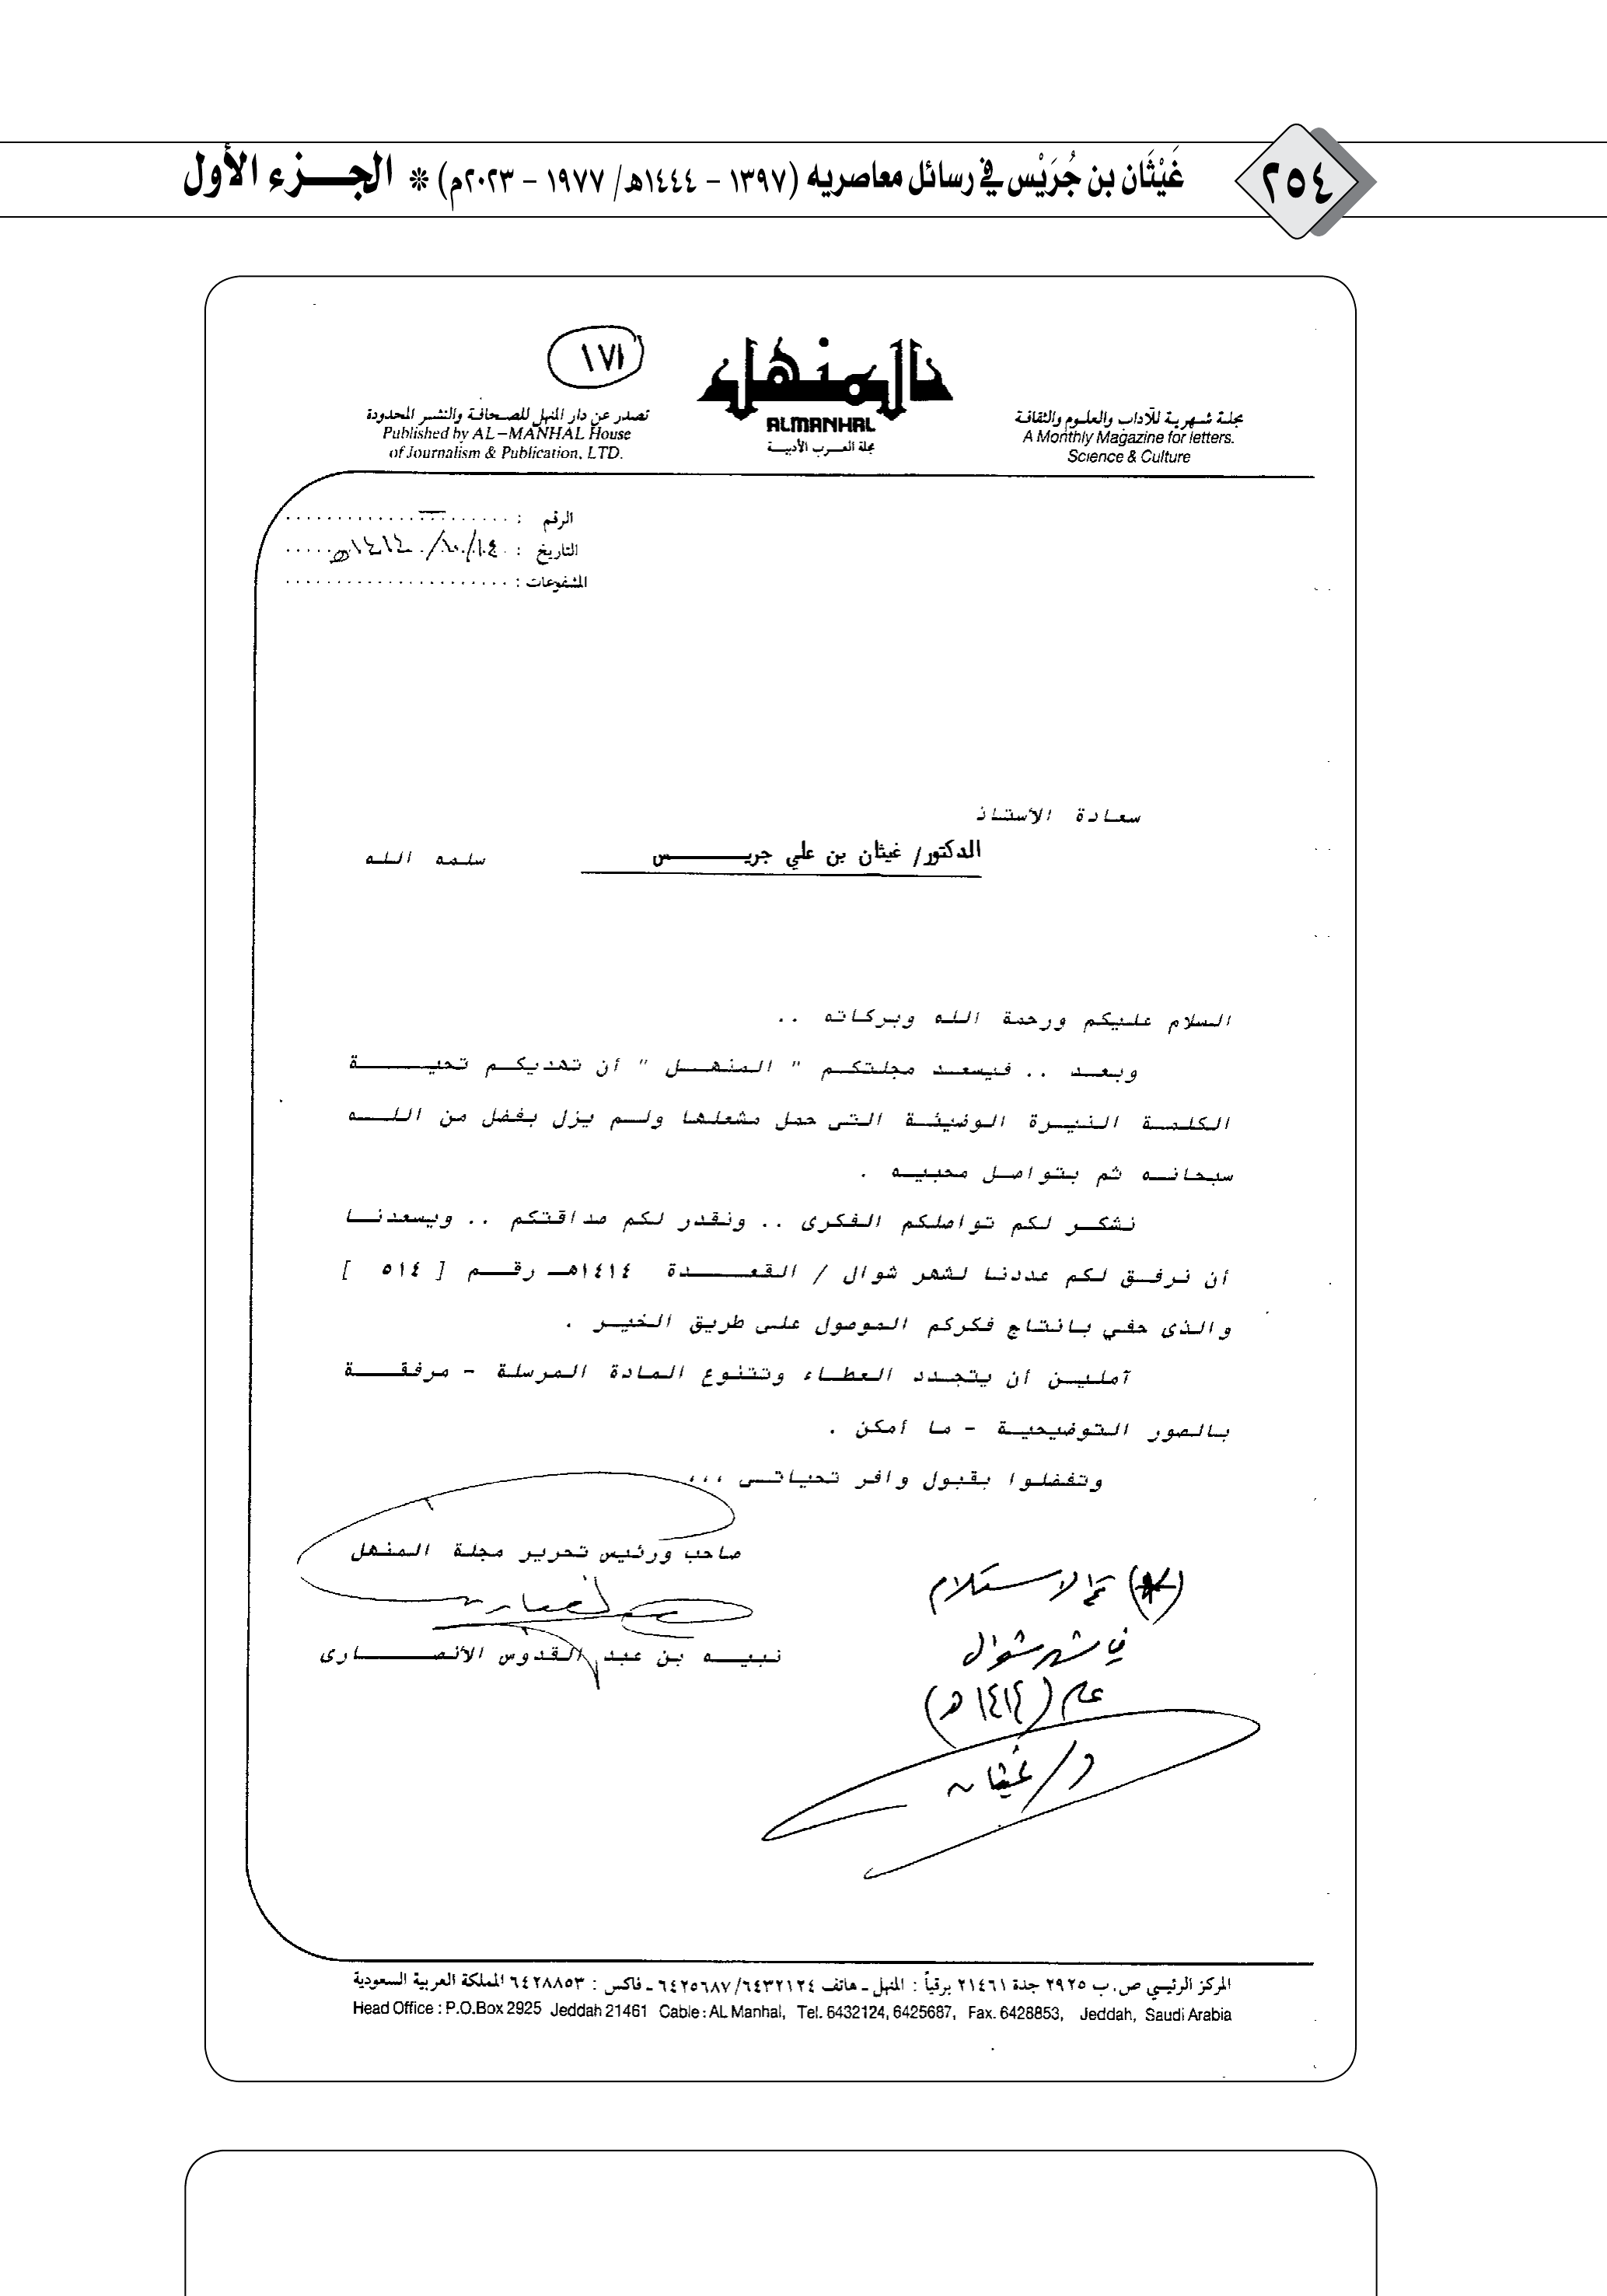 ٢٥٤
غَيْثَان بن جُرَيْس في رسائل معاصريه (١٣٩٧ - ١٤٤٤هـ/ ١٩٧٧ - ٢٠٢٣م) * الجـــزء الأول
١٧١
المنهل
ALMANHAL
مجلة العرب الأدبية
مجلة شهرية للآداب والعلوم والثقافة
A Monthly Magazine for letters.
Science & Culture
تصدر عن دار المنهل للصحافة والنشر المحدودة
Published by AL-MANHAL House
of Journalism & Publication, LTD.
الرقم :
التاريخ : ١٤/١٠/١٤١٤هـ
المشفوعات :
سعادة الأستاذ
الدكتور/ غيثان بن علي جريـــس سلمه الله
السلام عليكم ورحمة الله وبركاته ..
وبعد .. فيسعد مجلتكم " المنهل " أن تهديكم تحية
الكلمة النيرة الوضيئة التى حمل مشعلها ولم يزل بفضل من الله
سبحانه ثم بتواصل محبيه .
نشكر لكم تواصلكم الفكرى .. ونقدر لكم صداقتكم .. ويسعدنا
أن نرفق لكم عددنا لشهر شوال / القعدة ١٤١٤هـ رقم [ ٥١٤ ]
والذى حفي بانتاج فكركم الموصول على طريق الخير .
آملين أن يتجدد العطاء وتتنوع المادة المرسلة - مرفقة
بالصور التوضيحية - ما أمكن .
وتفضلوا بقبول وافر تحياتى ،،،
صاحب ورئيس تحرير مجلة المنهل
نبيه بن عبد القدوس الأنصارى
(*) تم الاستلام
في شهر شوال
عام (١٤١٤هـ)
د/ غيثان
المركز الرئيسي ص.ب ٢٩٢٥ جدة ٢١٤٦١ برقياً : المنهل ـ هاتف ٦٤٣٢١٢٤/٦٤٢٥٦٨٧ ـ فاكس : ٦٤٢٨٨٥٣ المملكة العربية السعودية
Head Office : P.O.Box 2925 Jeddah 21461 Cable : AL Manhal, Tel. 6432124, 6425687, Fax. 6428853, Jeddah, Saudi Arabia